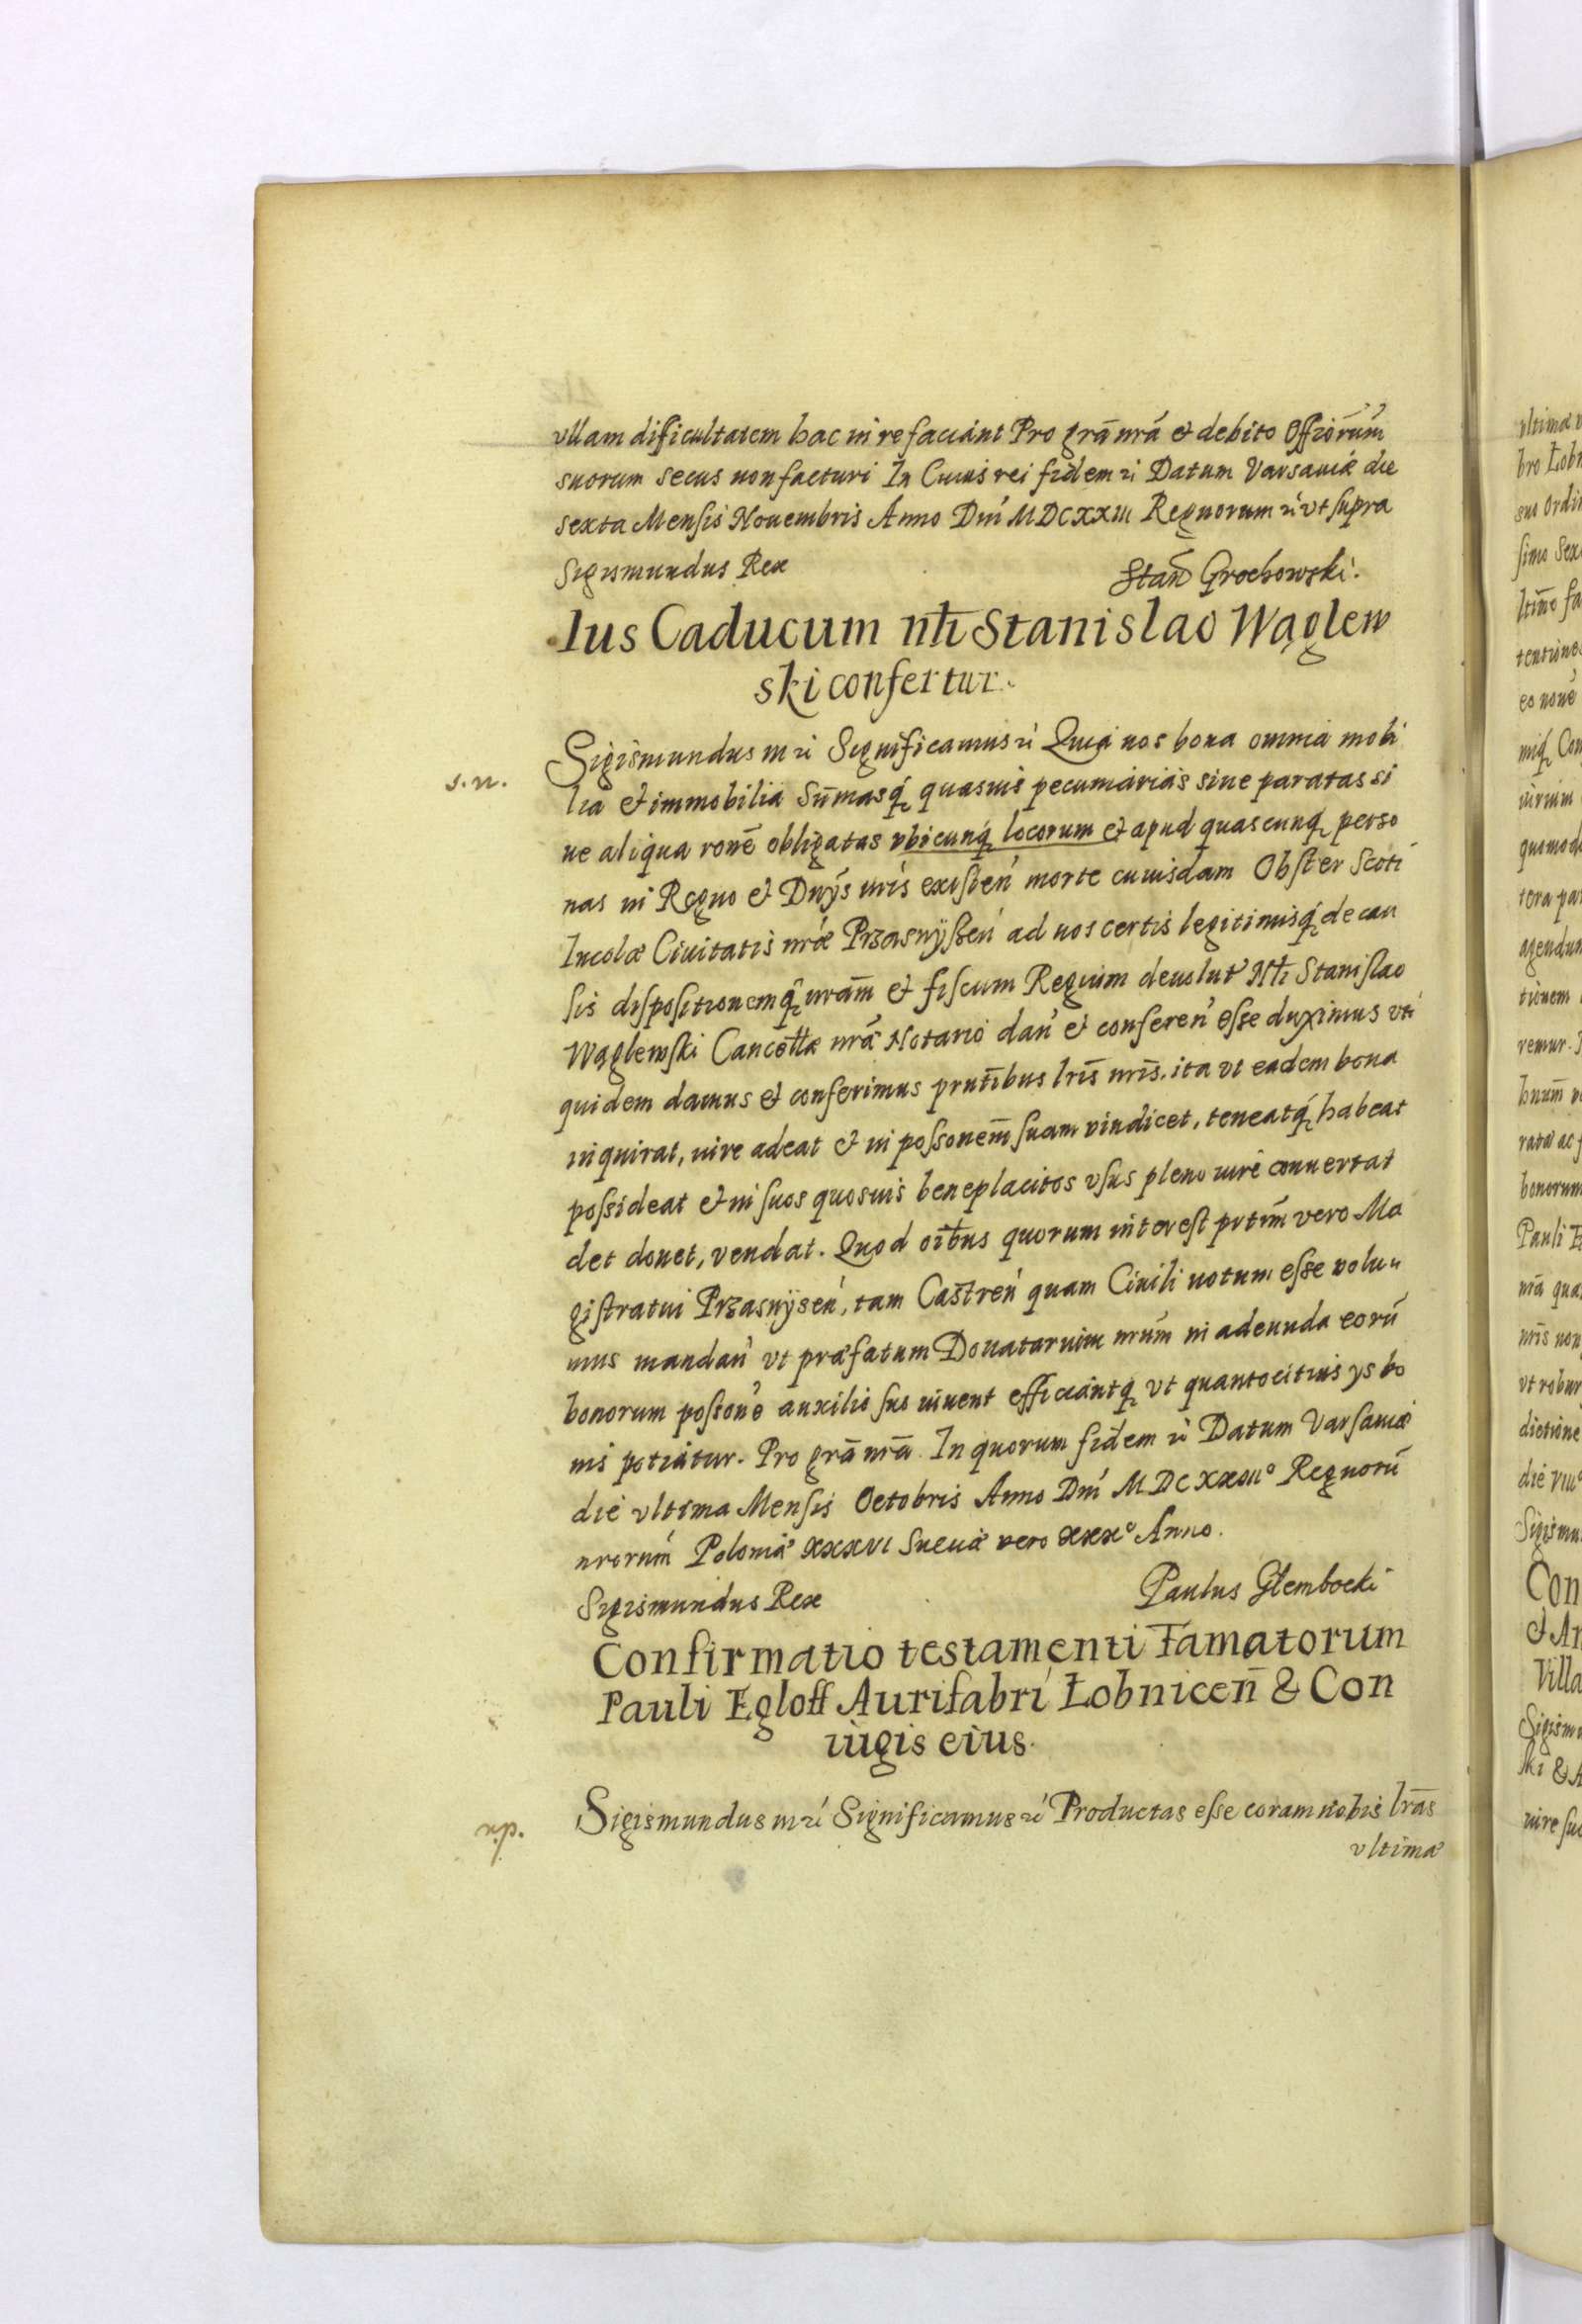 vllam difficultatem hac in re faciant Pro grã nrã & debito Offiorum
suorum secus non facturi In Cuius rei fidem zc Datum Varsauiæ die
sexta Mensis Nouembris Anno Dni MDCXXIII Regnorum zc vt supra
Sigismundus Rex Stan Grochowski.
Ius Caducum nłi Stanislao Wąglew
ski confertur.
s.n.
Sigismundus III zc Significamus zc Quia nos bona omnia mobi
lia & immobilia Sumasq quasuis pecuniarias siue paratas si
ue aliqua rone obligatas vbicunq locorum & apud quascunq perso
nas in Regno & Dnys nris existen morte cuiusdam Obster Scoti
Incolæ Ciuitatis nræ Przasnyszen ad nos certis legitimisq de cau
sis dispositionemq nram & fiscum Regium deuolut Nłi Stanislao
Wąglewski Cancellæ nræ Notario dan & conferen esse duximus vti
quidem damus & conferimus pntibus lris nris. ita vt eadem bona
inquirat, iure adeat & in possonem suam vindicet, teneatq habeat
possideat & in suos quosuis beneplacitos vsus pleno iure conuertat
det donet, vendat. Quod oibus quorum interest prtim vero Ma
gistratui Przasnysen, tam Castren quam Ciuili notum esse volu
mus mandan vt præfatum Donatarium nrum in adeunda eorum
bonorum possone auxilio suo iuuent efficiantq vt quantocitius ys bo
nis potiatur. Pro grã nrã In quorum fidem zc Datum Varsauiæ
die vltima Mensis Octobris Anno Dni MDCXXIII° Regnorum
nrorum Poloniæ XXXVI Sueciæ vero XXX° Anno.
Sigismundus Rex Paulus Glembocki
Confirmatio testamenti Famatorum
Pauli Egloff Aurifabri Łobnicen & Con
iugis eius.
n.p.
Sigismundus III zc Significamus zc Productas esse coram nobis lras
vltimæ